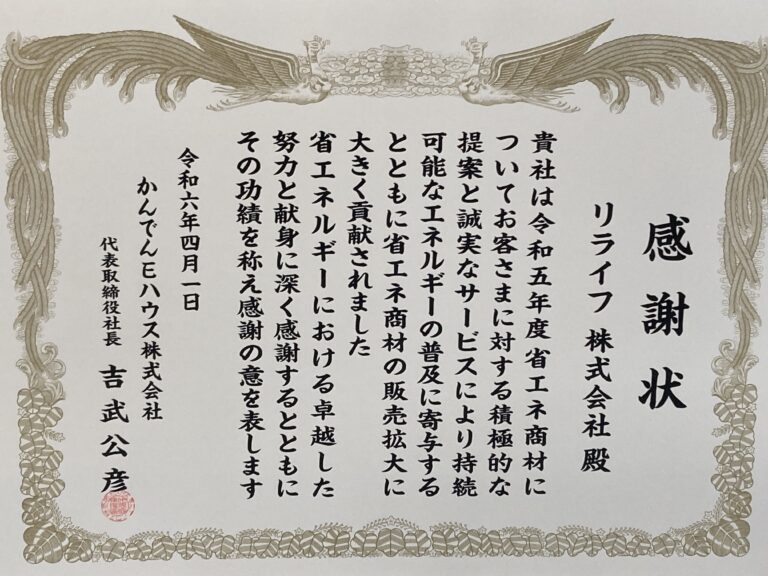 感謝状
リライフ 株式会社 殿
貴社は令和五年度省エネ商材に
ついてお客さまに対する積極的な
提案と誠実なサービスにより持続
可能なエネルギーの普及に寄与する
とともに省エネ商材の販売拡大に
大きく貢献されました
省エネルギーにおける卓越した
努力と献身に深く感謝するとともに
その功績を称え感謝の意を表します
令和六年四月一日
かんでんEハウス株式会社
代表取締役社長 吉武公彦